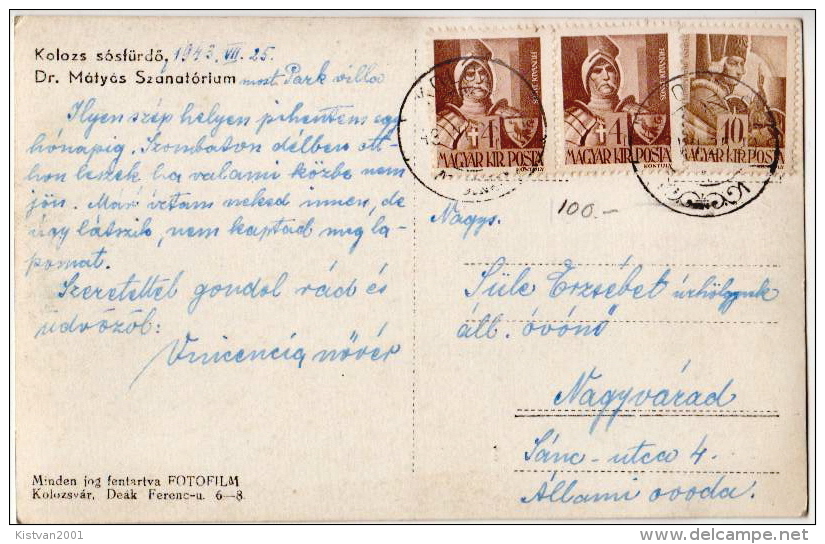 Kolozs sósfürdő, 1943. VII. 25.
Dr. Mátyás Szanatórium most. Park villa
Ilyen szép helyen pihentem egy
hónapig. Szombaton délben ott-
hon leszek ha valami közbe nem
jön. Már írtam neked innen, de
úgy látszik, nem kaptad meg la-
pomat.
Szeretettel gondol rád és
üdvözöl:
Vnicencia nővér
Minden jog fentartva FOTOFILM
Kolozsvár, Deák Ferenc-u. 6—8.
HUNYADI JÁNOS
4
MAGYAR KIR. POSTA
KONTULY
HUNYADI JÁNOS
4
MAGYAR KIR. POSTA
KONTULY
10
MAGYAR KIR. POSTA
100.-
Nagys.
Süle Erzsébet úrhölgynek
áll. óvónő
Nagyvárad
Sánc-utca 4.
Állami ovoda.
Kistvan2001
delcampe.net